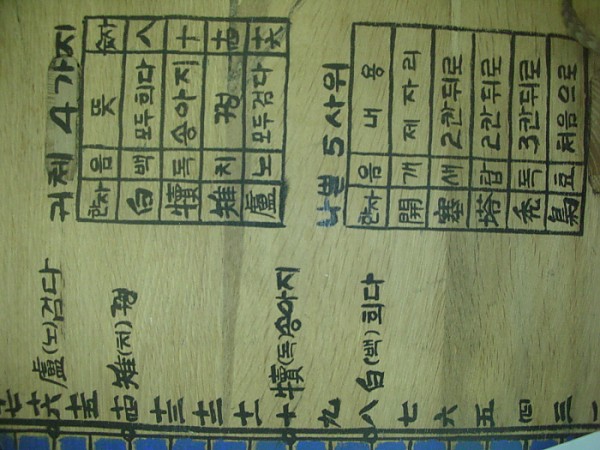 귀체 4 가지
한자 음 뜻 숫자
白 백 모두희다 八
犢 독 송아지 十
雉 치 꿩 十四
盧 노 모두검다 十六
5 사위
한자 음 내용
開 개 제자리
塞 새 2칸뒤로
塔 탑 2칸뒤로
禿 독 3칸뒤로
梟 효 처음으로
十七
十六 盧(노)검다
十五
十四 雉(치)꿩
十三
十二
十一
十 犢(독)송아지
九
八 白(백)희다
七
六
五
四
三